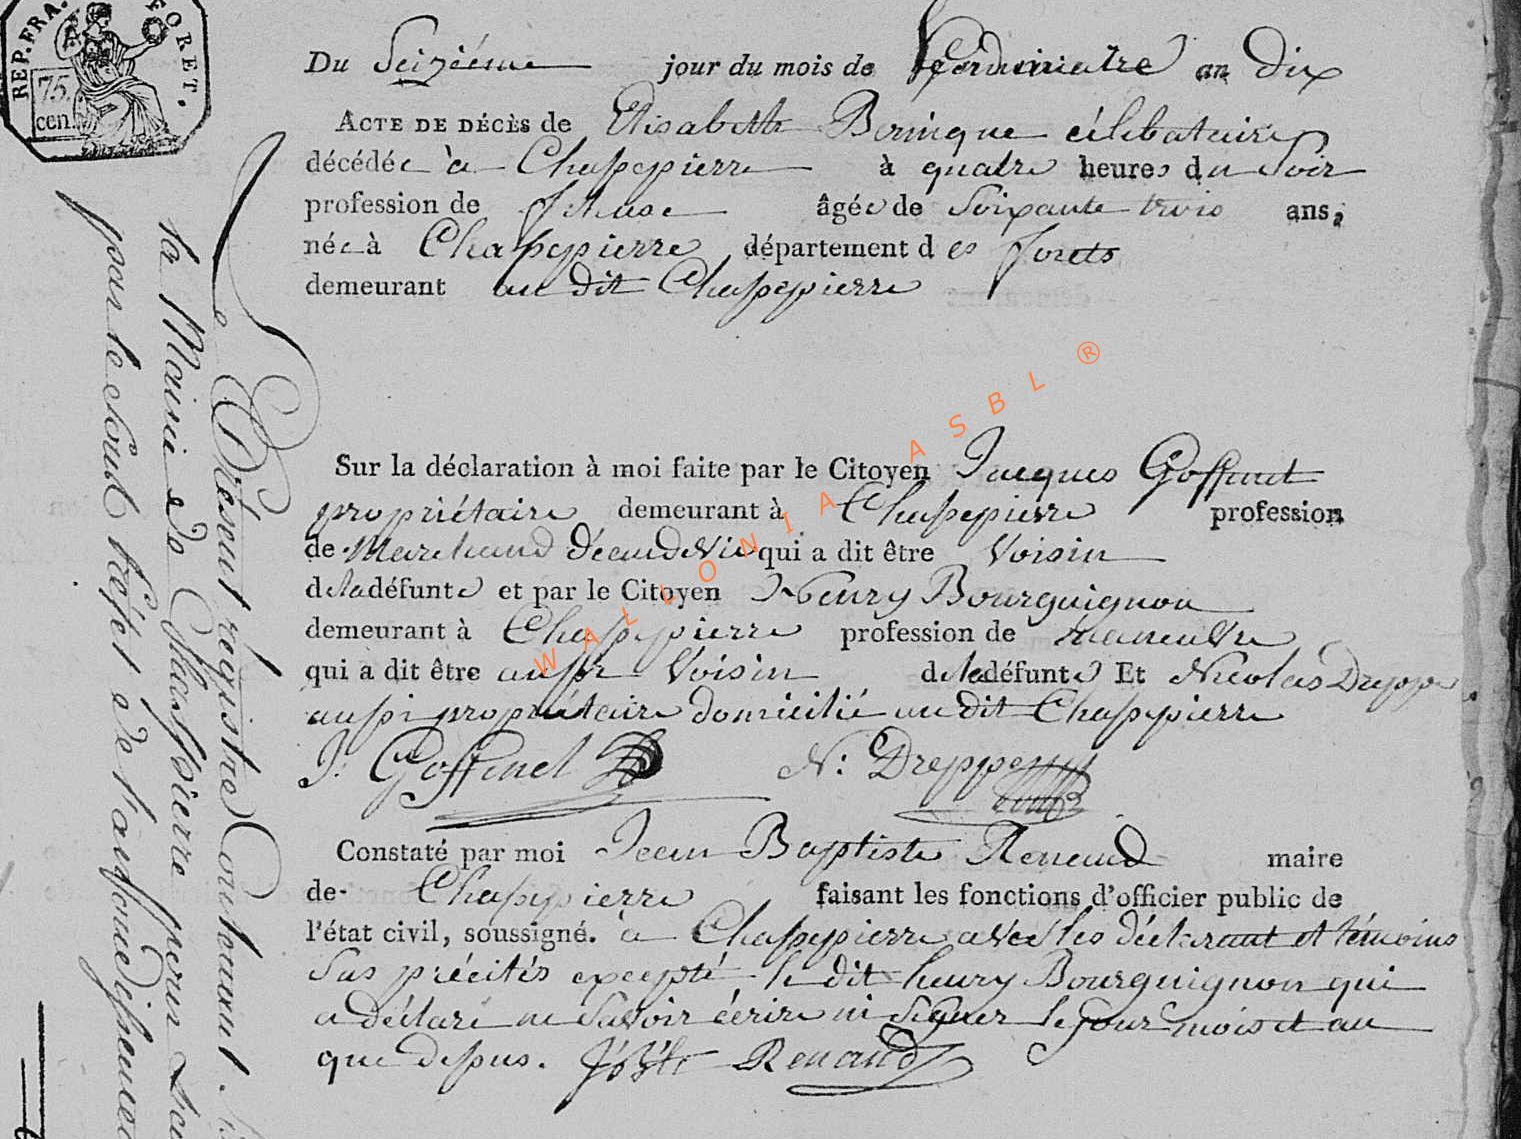 REP. FRA. FORET.
75. cen.
Du Seiziéme jour du mois de an dix
ACTE DE DÉCÈS de Elisabette célibataire
décédée à Chassepierre à quatre heures du Soir
profession de fileuse âgée de Soixante trois ans,
née à Chassepierre département des forets
demeurant au dit Chassepierre
Sur la déclaration à moi faite par le Citoyen Jacques Goffinet
propriétaire demeurant à Chassepierre profession
de Marchand d'eau de Vie qui a dit être Voisin
de la défunte et par le Citoyen Henry Bourguignon
demeurant à Chassepierre profession de maneuvre
qui a dit être aussi Voisin de la défunte Et Nicolas Dreppe
aussi propriétaire domicilié au dit Chassepierre
J: Goffinet N: Dreppe
Constaté par moi Jean Baptiste Renaud maire
de Chassepierre faisant les fonctions d'officier public de
l'état civil, soussigné. à Chassepierre avec les déclarant et témoins
Sus précités excepté le dit henry Bourguignon qui
a déclaré ne Savoir écrire ni Signer le jour mois et an
que dessus. Renaud
Le Présent registre Contenant
la Mairie de Chassepierre
par le Sous Préfet de l'arrondissement
WALLONIA ASBL ®